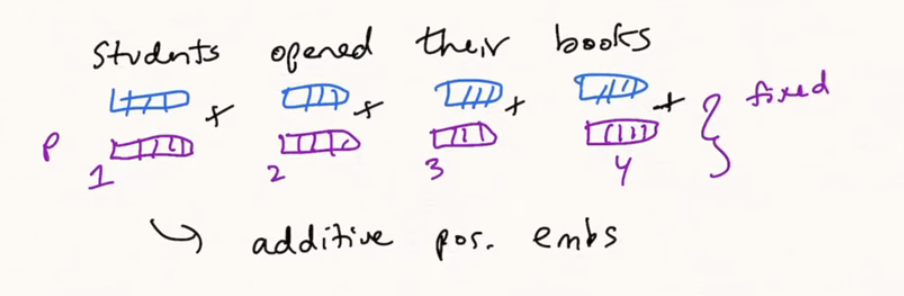 Students opened their books
+ + + +
P fixed
1 2 3 4
additive pos. embs